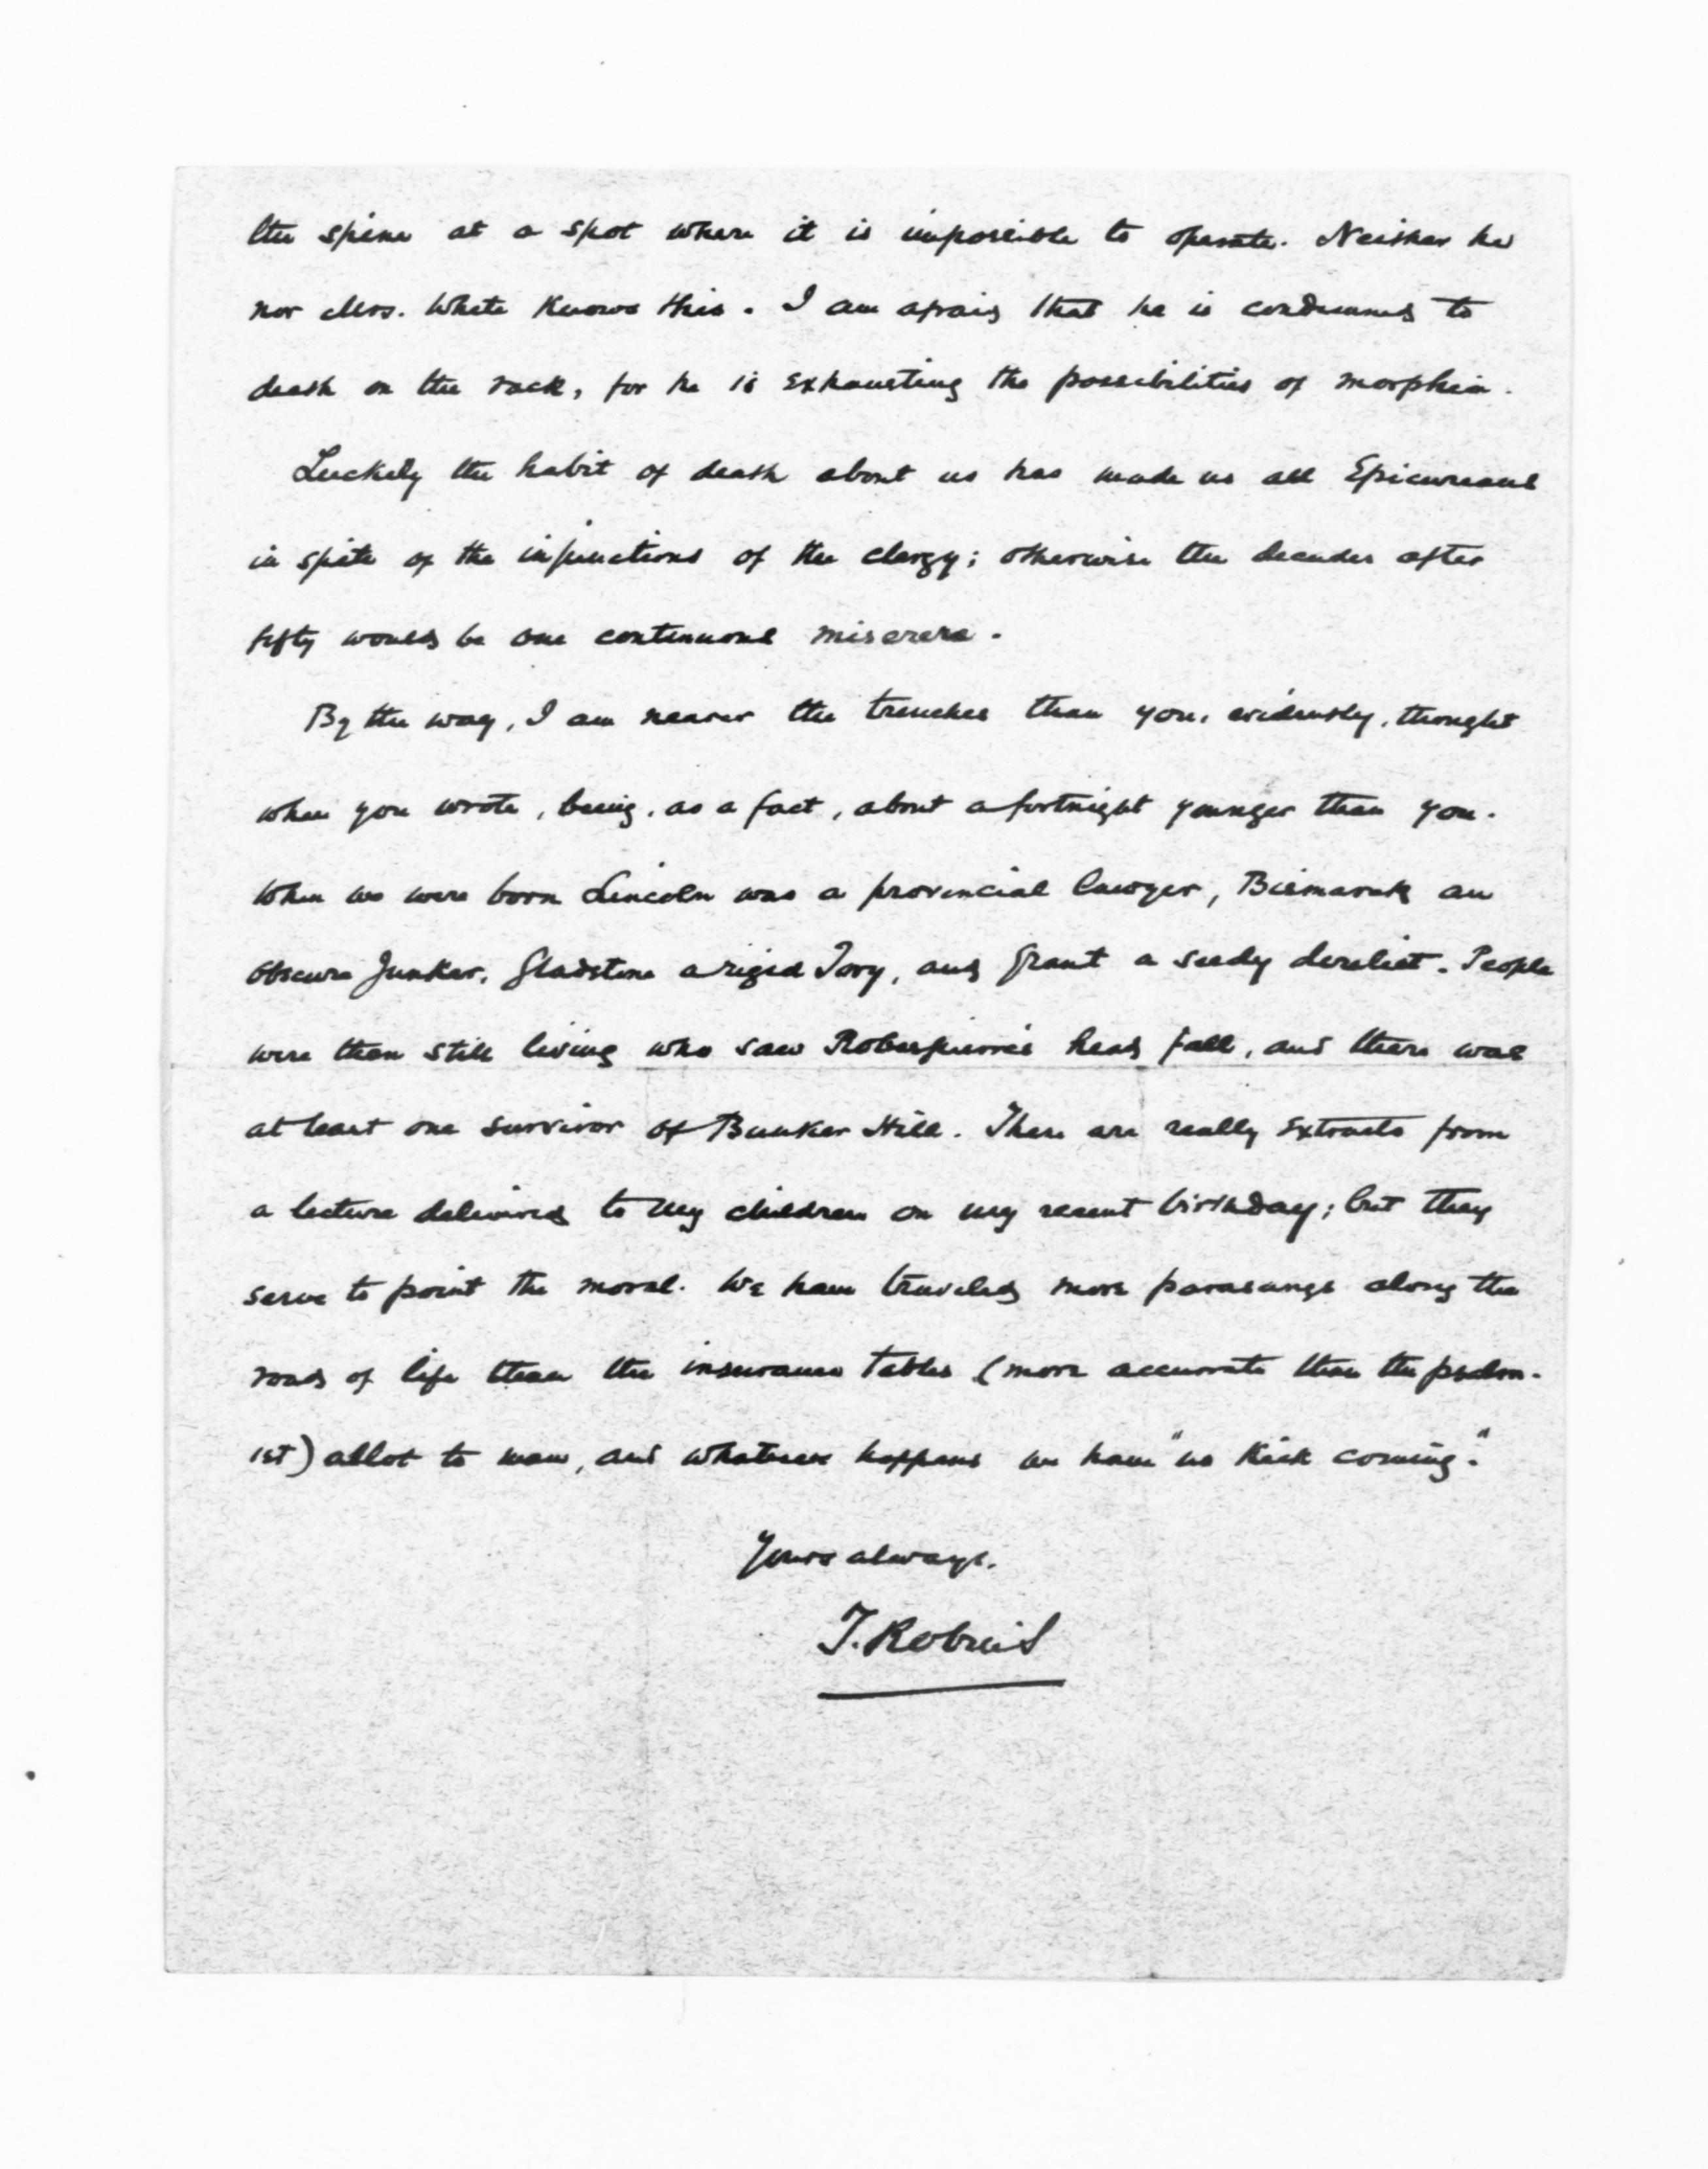 the spine at a spot where it is impossible to operate. Neither he
nor Mrs. White knows this. I am afraid that he is condemned to
death on the rack, for he is exhausting the possibilities of morphia.
Luckily the habit of death about us has made us all Epicureans
in spite of the injunctions of the clergy; otherwise the decades after
fifty would be one continuous miserere.
By the way, I am nearer the trenches than you, evidently, thought
when you wrote, being, as a fact, about a fortnight younger than you.
When we were born Lincoln was a provincial lawyer, Bismarck an
obscure Junker, Gladstone a rigid Tory, and Grant a seedy derelict. People
were then still living who saw Robespierre's head fall, and there was
at least one survivor of Bunker Hill. These are really extracts from
a lecture delivered to my children on my recent birthday; but they
serve to point the moral. We have traveled more parasangs along the
road of life than the insurance tables (more accurate than the psalm-
ist) allot to man, and whatever happens we have "no kick coming".
Yours always,